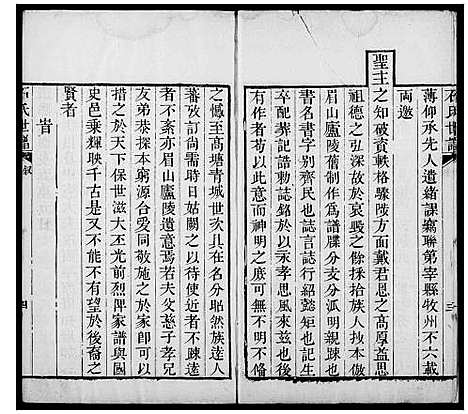 石氏世譜
三
薄仰承先人遺緒謀竊聯第宰縣牧州不六載
兩邀
聖主之知破資軼格驟陟方面戴君恩之高厚益思
祖德之弘深故于哀毀之餘採拾族人支派稍倣
眉山廬陵舊制作爲譜牒分支分派明親疎也
書名書字別齊民也誌言誌行紹懿矩也記生
卒配葬動誌銘於以永孝思風來茲也後
有作者苟以此而神明之庶可無憾不備不
之憾至於高塘青城世次具在名分昭然族達人
蕃攷訂尚需時日姑闕之以待使近者不疎遠
者不紊亦立眉山廬陵遺意焉若夫父慈子孝兄
友弟恭探本窮源合愛同敬施之於家卽可以
措之於天下保世滋大丕光前烈俾家譜與國
史邑乘輝映千古是又不能不有望於後裔之
賢者
旹
石氏世譜
敘
四